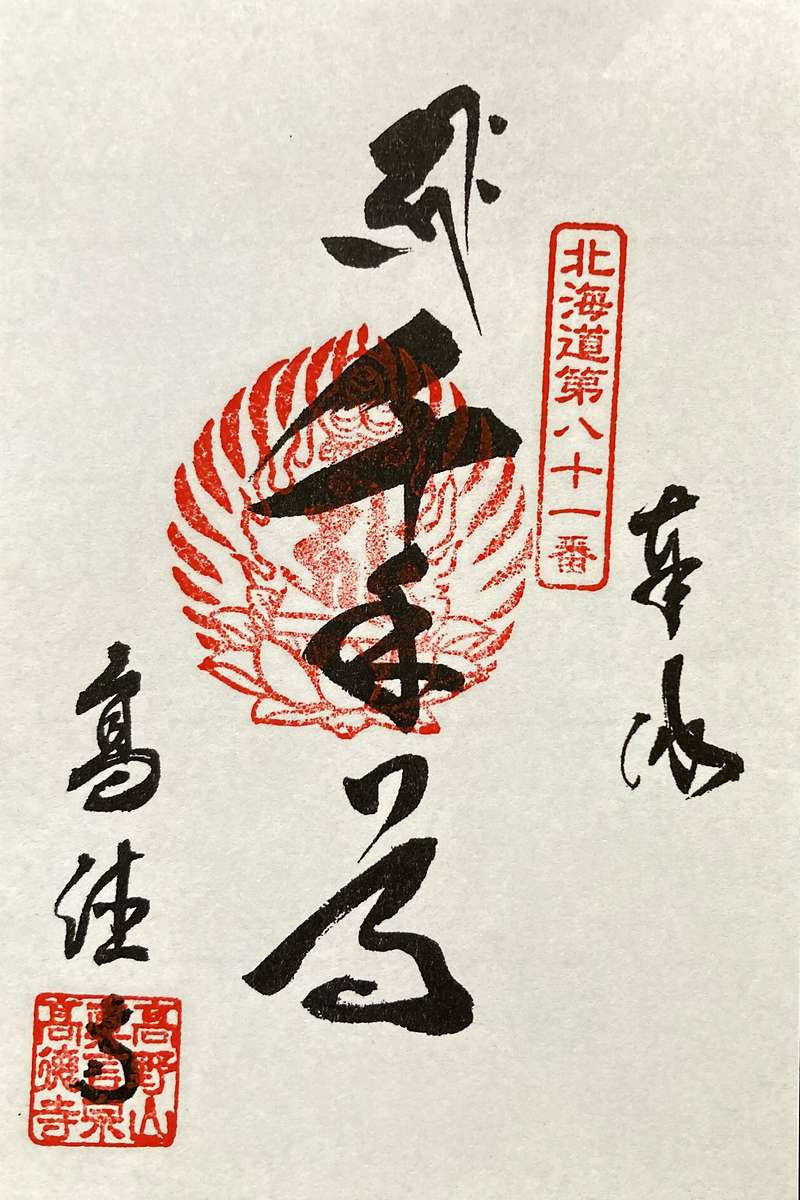 奉拝
北海道第八十一番
千手尊
高徳寺
高野山
真言宗
高徳寺